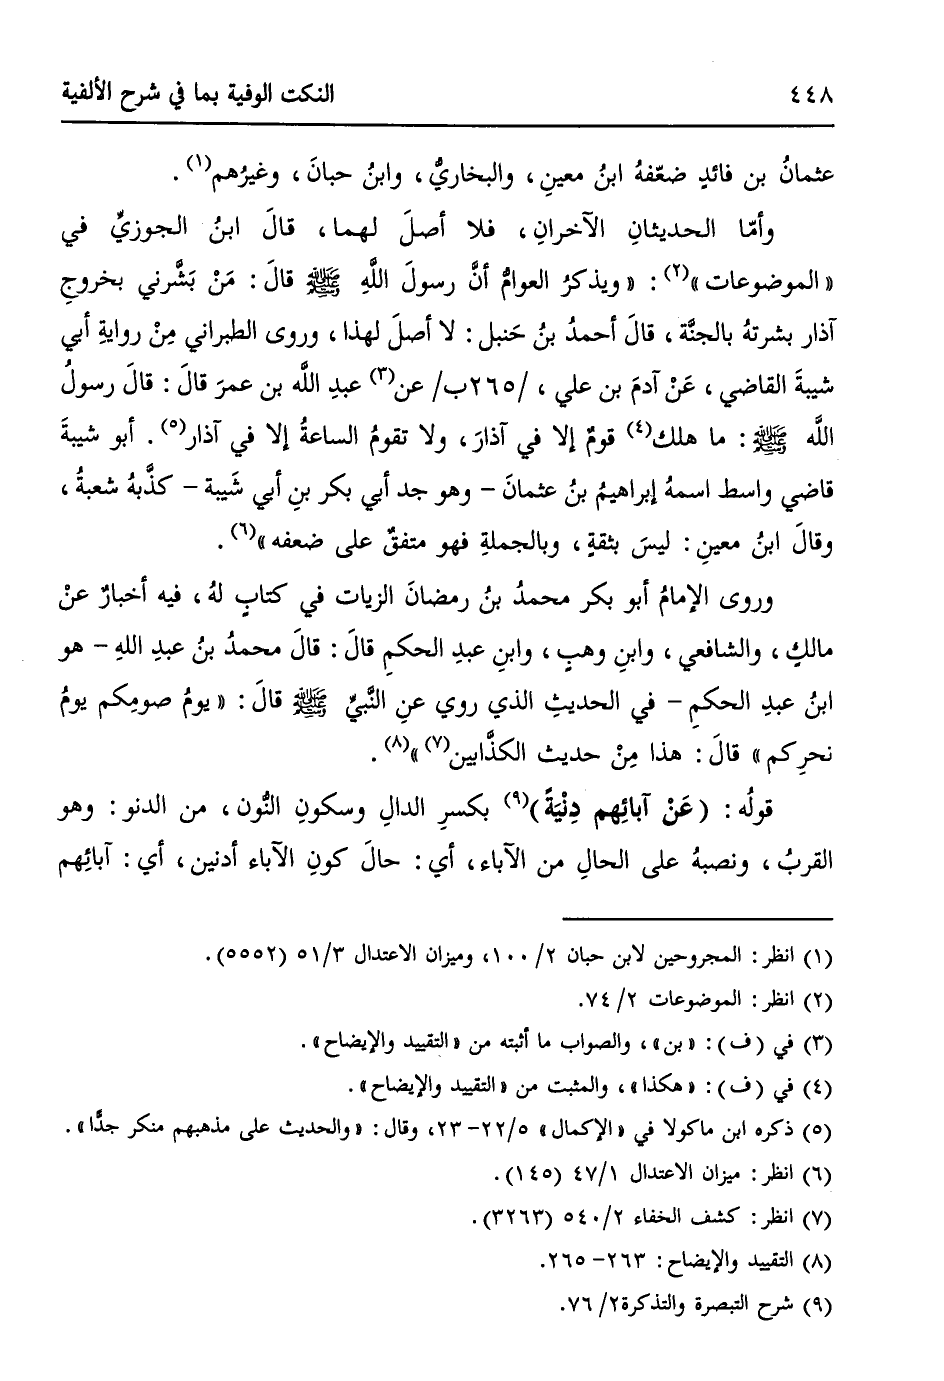 ٤٤٨ النكت الوفية بما في شرح الألفية
عثمانُ بن فائدٍ ضعّفهُ ابنُ معينِ، والبخاريُّ، وابنُ حبانَ، وغيرُهم(١).
وأمّا الحديثانِ الآخرانِ، فلا أصلَ لهما، قالَ ابنُ الجوزيِّ في
«الموضوعات»(٢): «ويذكرُ العوامُّ أنَّ رسولَ اللَّهِ ﷺ قالَ: مَنْ بَشَّرني بخروجِ
آذار بشرتهُ بالجنَّة، قالَ أحمدُ بنُ حَنبل: لا أصلَ لهذا، وروى الطبراني مِنْ روايةِ أبي
شيبةَ القاضي، عَنْ آدمَ بن علي، /٢٦٥ب/ عن(٣) عبدِ اللَّه بن عمرَ قالَ: قالَ رسولُ
اللَّه ﷺ: ما هلك(٤) قومٌ إلا في آذارَ، ولا تقومُ الساعةُ إلا في آذار(٥). أبو شيبةَ
قاضي واسط اسمهُ إبراهيمُ بنُ عثمانَ – وهو جد أبي بكر بنِ أبي شَيبة – كذَّبهُ شعبةُ،
وقالَ ابنُ معينِ: ليسَ بثقةٍ، وبالجملةِ فهو متفقٌ على ضعفه»(٦).
وروى الإمامُ أبو بكر محمدُ بنُ رمضانَ الزيات في كتابٍ لهُ، فيه أخبارٌ عنْ
مالكٍ، والشافعي، وابنِ وهبٍ، وابنِ عبدِ الحكمِ قالَ: قالَ محمدُ بنُ عبدِ اللهِ – هو
ابنُ عبدِ الحكمِ – في الحديثِ الذي روي عنِ النَّبيِّ ﷺ قالَ: «يومُ صومِكم يومُ
نحرِكم» قالَ: هذا مِنْ حديث الكذَّابين(٧)»(٨).
قولُه: (عَنْ آبائِهم دِنْيَةً)(٩) بكسرِ الدال وسكونِ النُّون، من الدنو: وهو
القربُ، ونصبهُ على الحال من الآباء، أي: حالَ كونِ الآباء أدنين، أي: آبائِهم
(١) انظر: المجروحين لابن حبان ٢/ ١٠٠، وميزان الاعتدال ٣/ ٥١ (٥٥٥٢).
(٢) انظر: الموضوعات ٢/ ٧٤.
(٣) في (ف): «بن»، والصواب ما أثبته من «التقييد والإيضاح».
(٤) في (ف): «هكذا»، والمثبت من «التقييد والإيضاح».
(٥) ذكره ابن ماكولا في «الإكمال» ٥/ ٢٢–٢٣، وقال: «والحديث على مذهبهم منكر جدًّا».
(٦) انظر: ميزان الاعتدال ١/ ٤٧ (١٤٥).
(٧) انظر: كشف الخفاء ٢/ ٥٤٠ (٣٢٦٣).
(٨) التقييد والإيضاح: ٢٦٣–٢٦٥.
(٩) شرح التبصرة والتذكرة٢/ ٧٦.